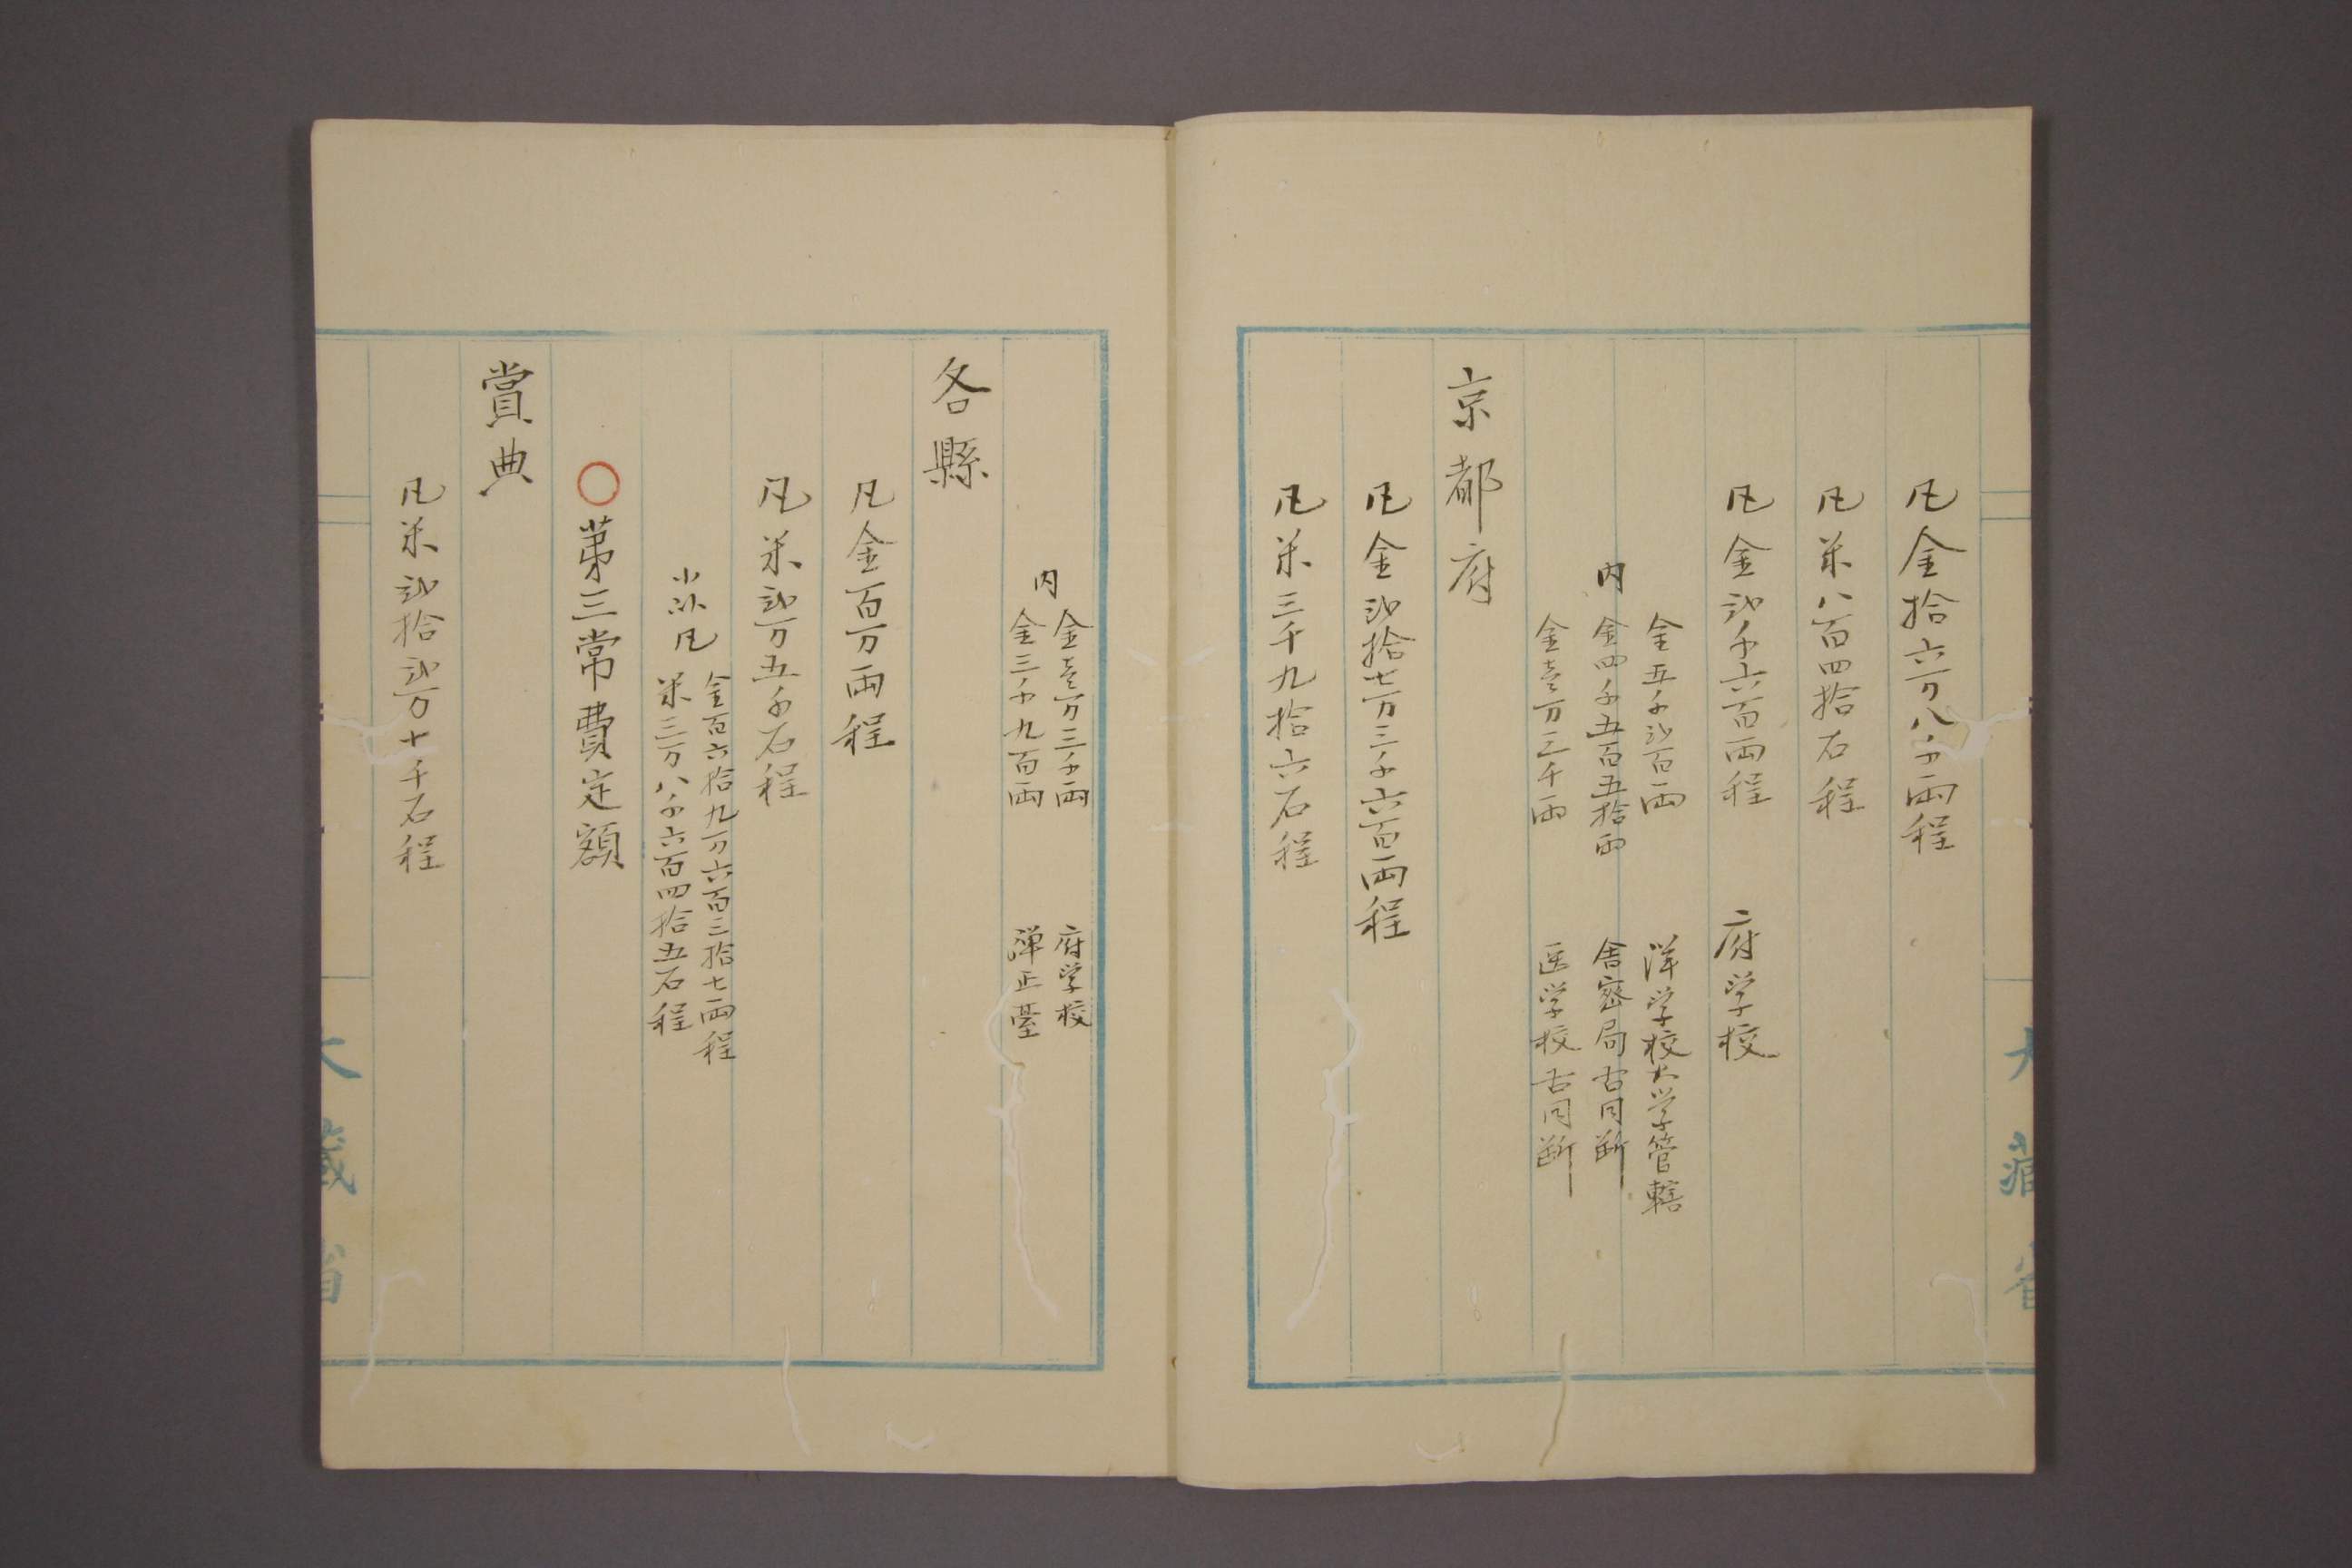 凡金拾六万八千両程
凡米八百四拾石程
凡金弐千六百両程 府学校
金五千弐百両 洋学校大学管轄
内 金四千五百五拾両 舎密局右同断
金壱万三千両 医学校右同断
京都府
凡金弐拾七万三千六百両程
凡米三千九拾六石程
内 金壱万三千両 府学校
金三千九百両 弾正臺
各縣
凡金百万両程
凡米弐万五千石程
小以凡 金百六拾九万六百三拾七両程
米三万八千六百四拾五石程
○第三常費定額
賞典
凡米弐拾弐万七千石程
大藏省